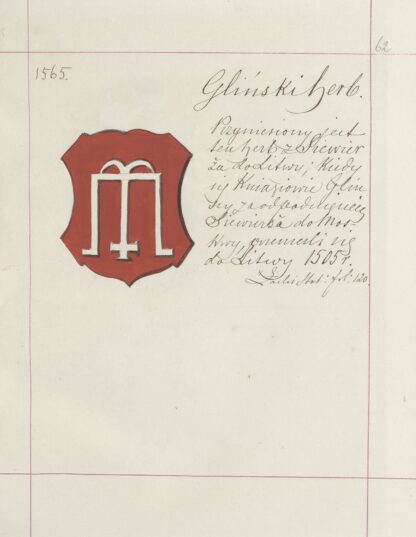 62
1565.
Gliński herb.
Przyniesiony jest
ten herb z Siewier
ża do Litwy; kiedy
się Kniaziowie Gliń
scy za odpadnięciem
Siewierża do Mos-
kwy, przenieśli się
do Litwy 1505 r.
fol: 120.